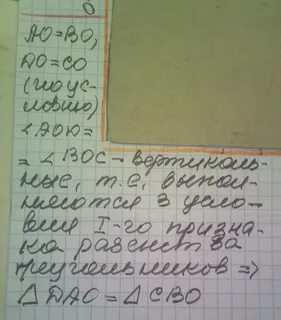 О
АО=ВО,
DО=СО
(по ус-
ловию)
∠AOD=
=∠BOC-вертикаль-
ные, т.е, выпол-
няются 3 усло-
вия I-го призна-
ка равенства
треугольников =>
△DAO=△CBO